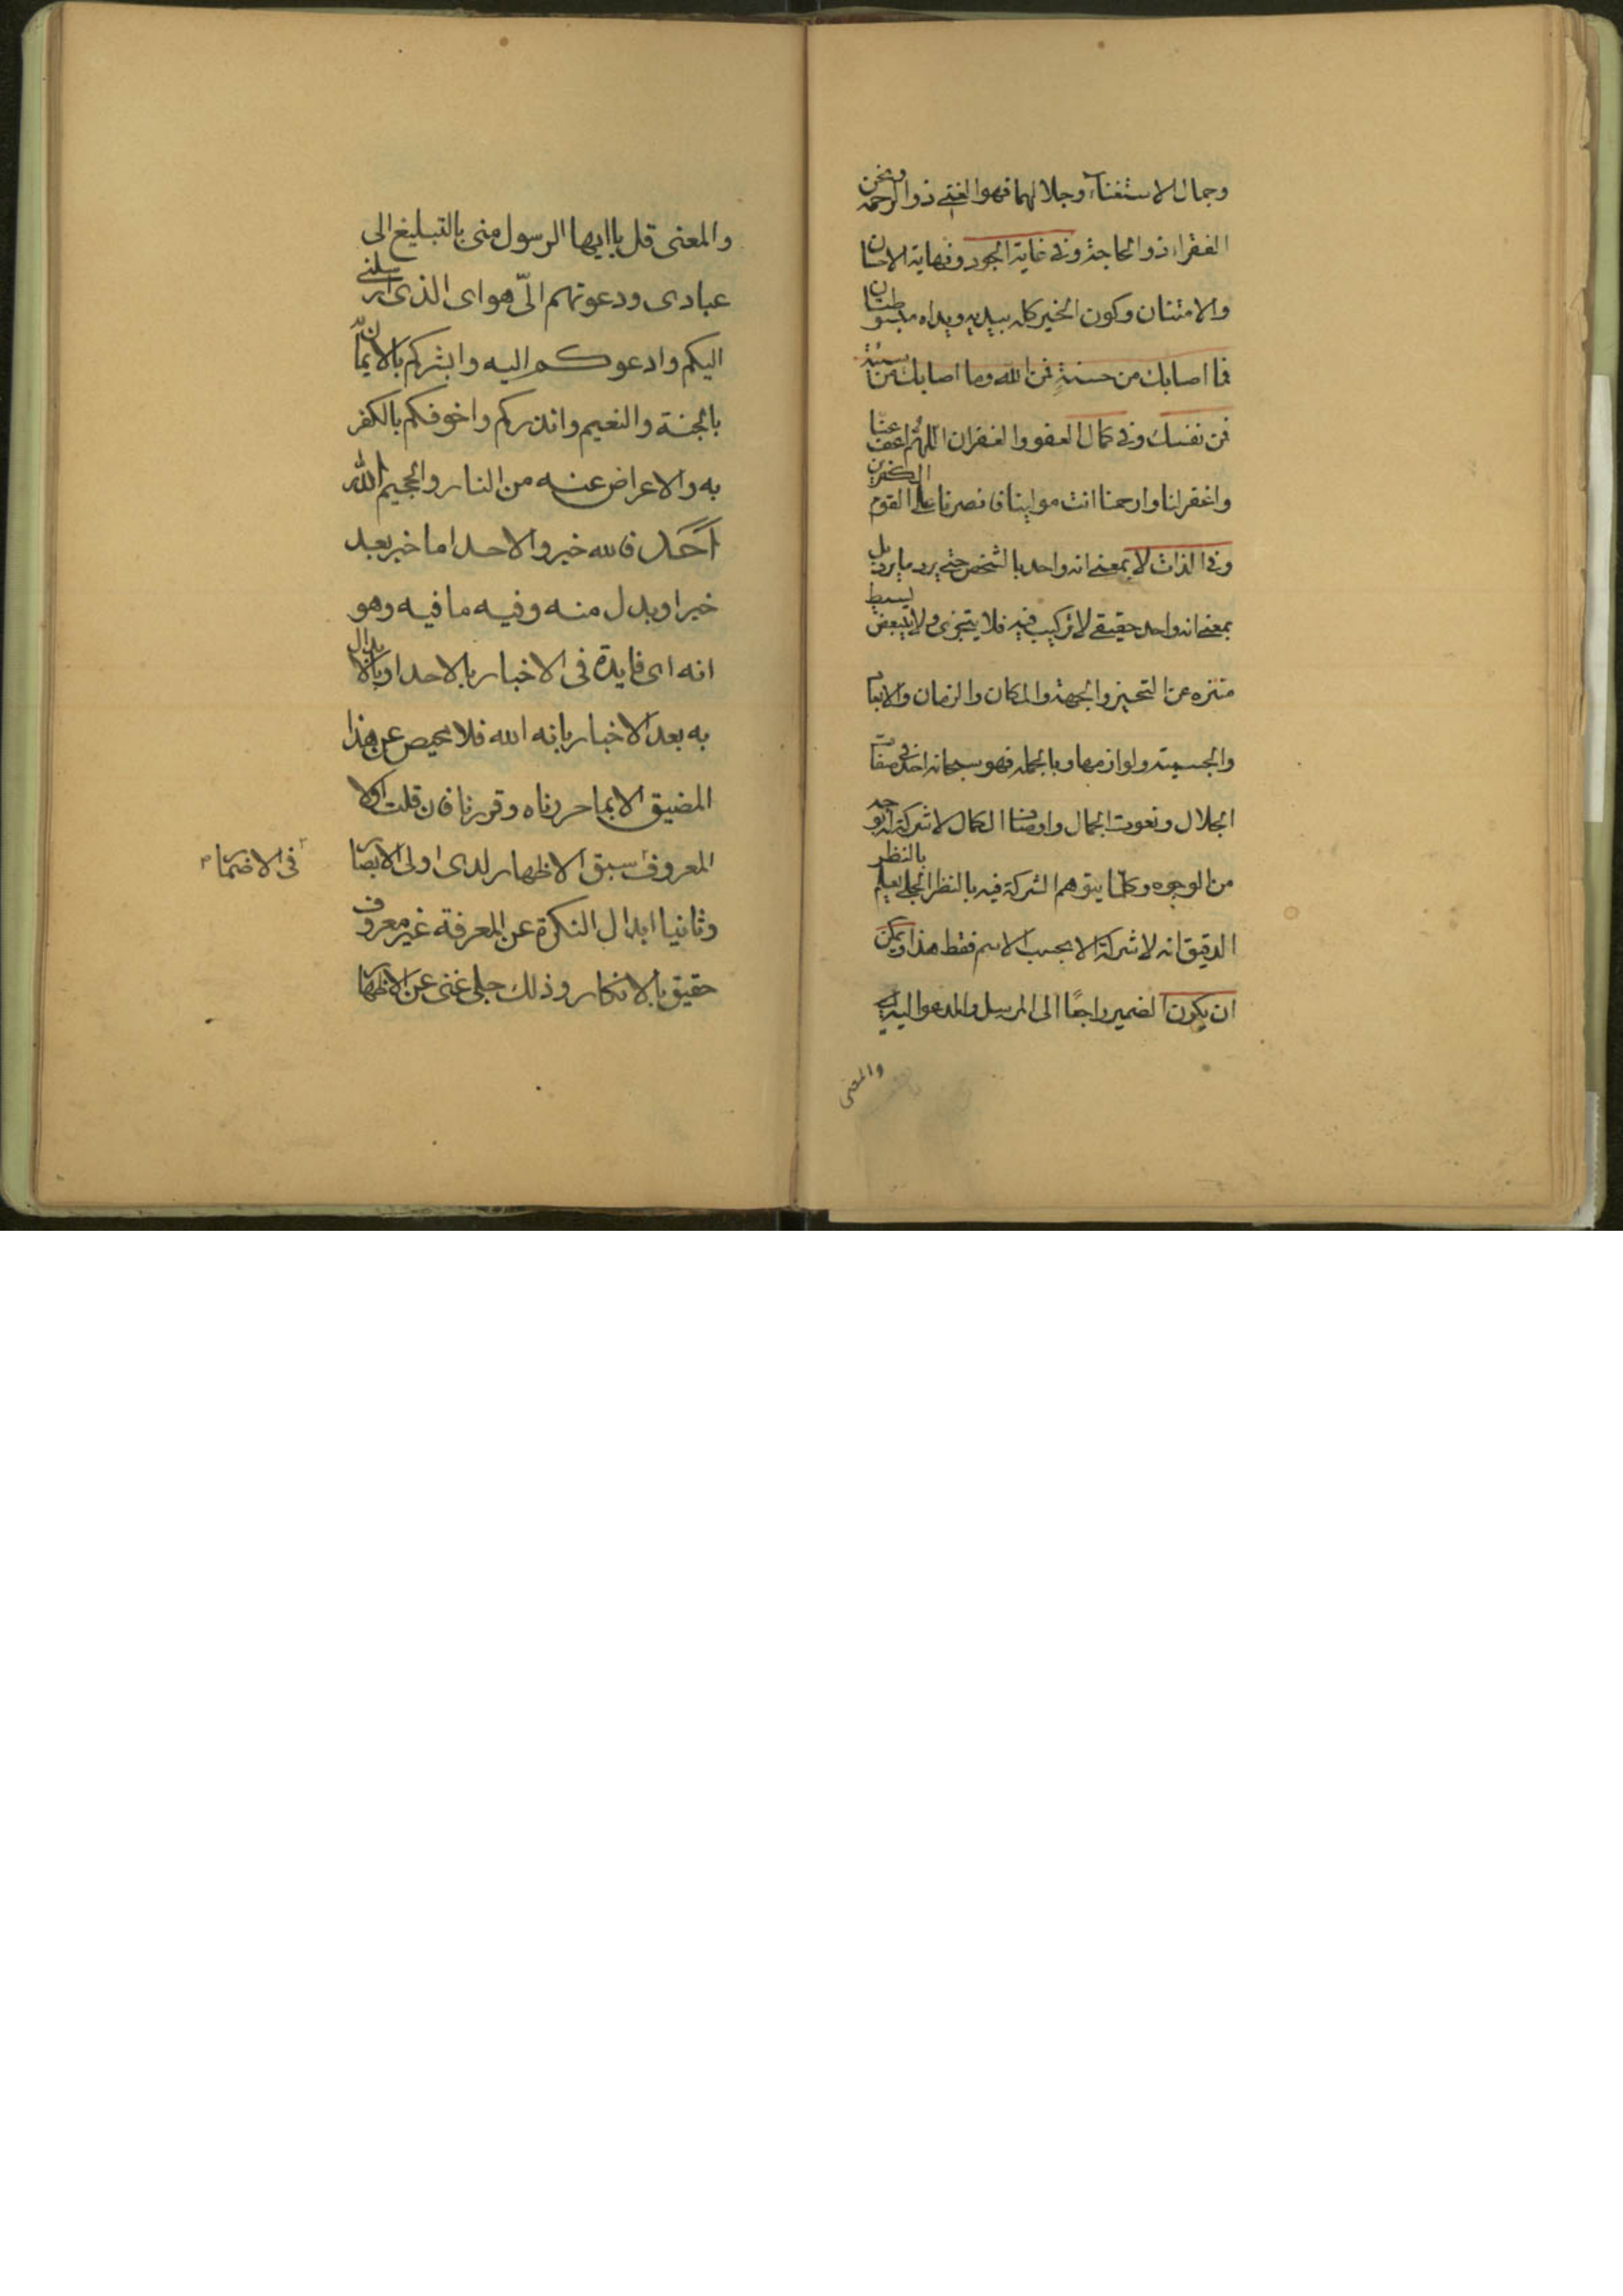 وجمال الاستغناء وجلالهما فهو الغني ذو الرحمة ونحن
الفقراء ذو الحاجة وفي غاية الجود ونهاية الاحسان
والامتنان وكون الخير كله بيديه ويداه مبسوطتان
فما اصابك من حسنة فمن الله وما اصابك من سيئة
فمن نفسك وفي كمال العفو والغفران اللهم اعف عنا
واغفر لنا وارحمنا انت مولينا فانصرنا على القوم الكفرين
وفي الذات لا بمعنى انه واحد بالشخص حتى يرد ما يرد بل
بمعنى انه واحد حقيقي لا تركيب فيه فلا يتجزى ولا يتبعض بسيط
منزه عن التحيز والجهة والمكان والزمان والابتا
والجسمية ولوازمها وبالجملة فهو سبحانه احد في صفات
الجلال ونعوت الجمال واوصاف الكمال لا شركة له بوجه
من الوجوه وكلما يتوهم الشركة فيه بالنظر الجلي يعلم بالنظر
الدقيق انه لا شركة الا بحسب الاسم فقط هذا ويمكن
ان يكون الضمير راجعًا الى المرسل والمدعو اليه اي
والمعنى
والمعنى قل يا ايها الرسول منى بالتبليغ الى
عبادى ودعوتهم الىّ هو اى الذى ارسلنى
اليكم وادعوكم اليه وابشركم بالايمان به
بالجنة والنعيم وانذركم واخوفكم بالكفر
به والاعراض عنه من النار والجحيم الله
اَحَدٌ فالله خبر والاحد اما خبر بعد
خبر او بدل منه وفيه ما فيه وهو
انه اى فايدة فى الاخبار بالاحد او بالابدال
به بعد الاخبار بانه الله فلا محيص عن هذا
المضيق الا بما حررناه وقررنا فان قلت اولا
المعروف سبق الاظهار لدى اولى الابصار
فى الاضمار
وثانيا ابدال النكرة عن المعرفة غير معروف
حقيق بالانكار وذلك جلى غنى عن الاظهار